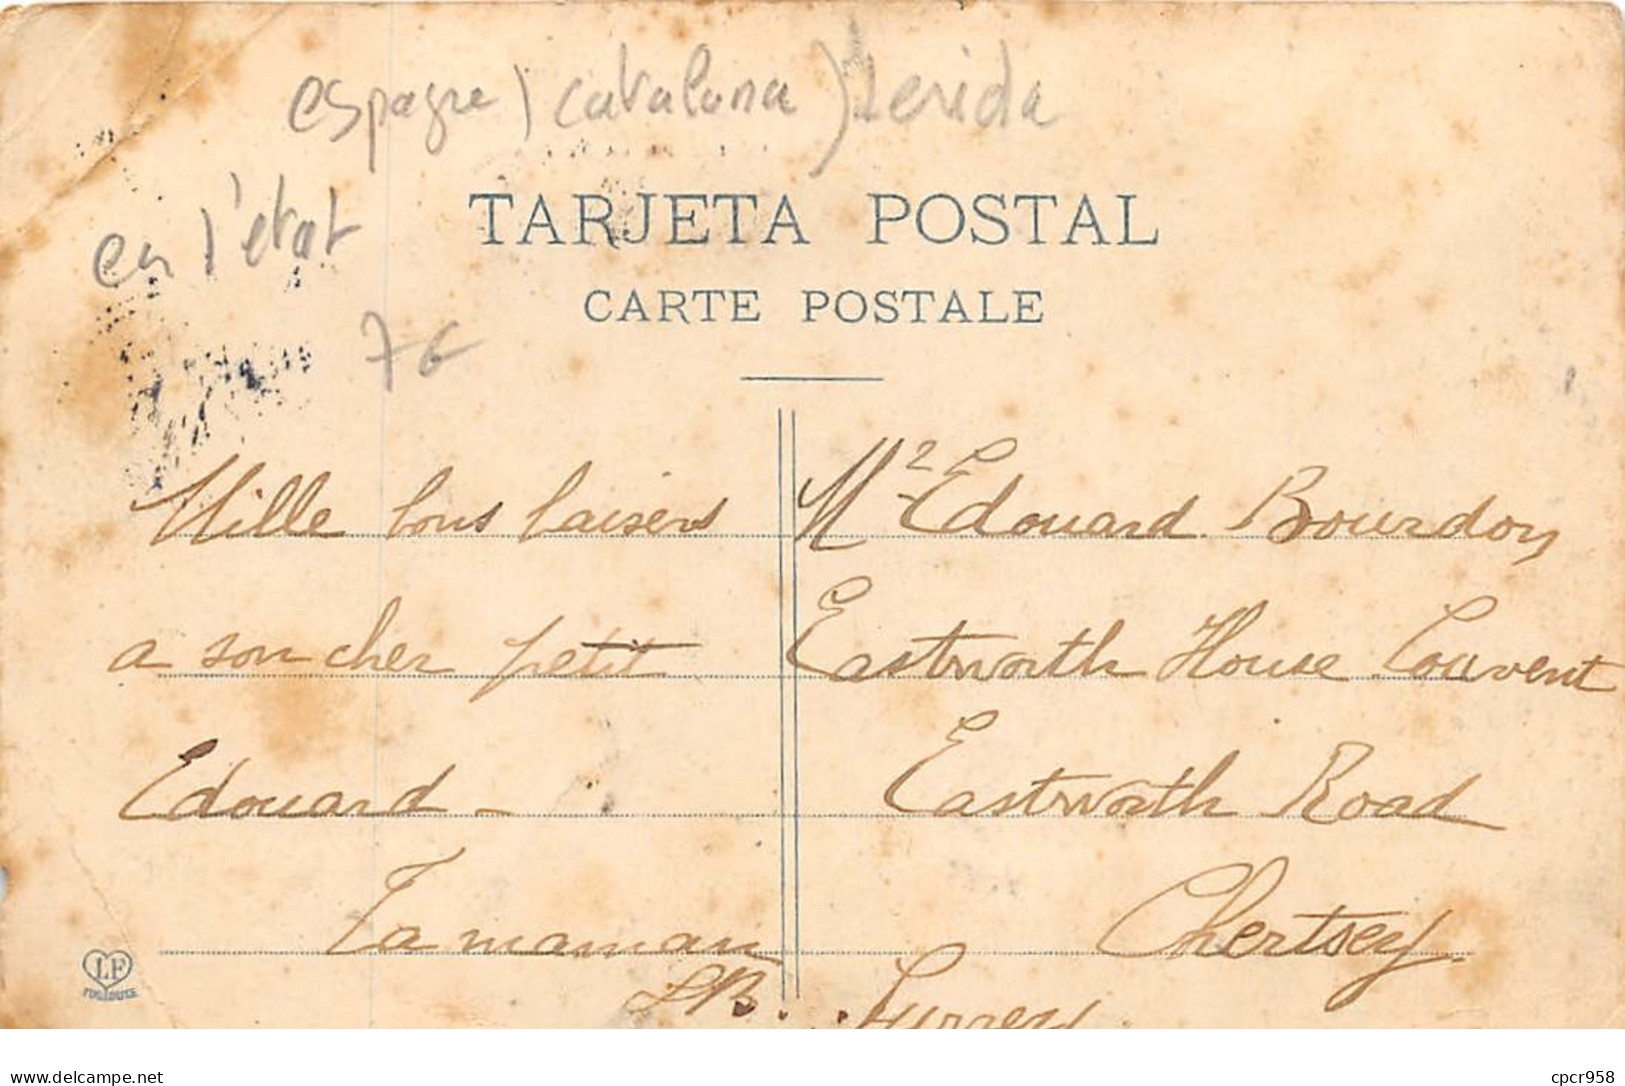 espagne) Cataluna) Lerida
en l'état
7€
TARJETA POSTAL
CARTE POSTALE
Mille bons baisers
a son cher petit
Edouard -
Ta maman
M2 Edouard Bourdon
Eastworth House Convent
Eastworth Road
Chertsey.
Surrey
LF
TOULOUSE
www.delcampe.net
cpcr958